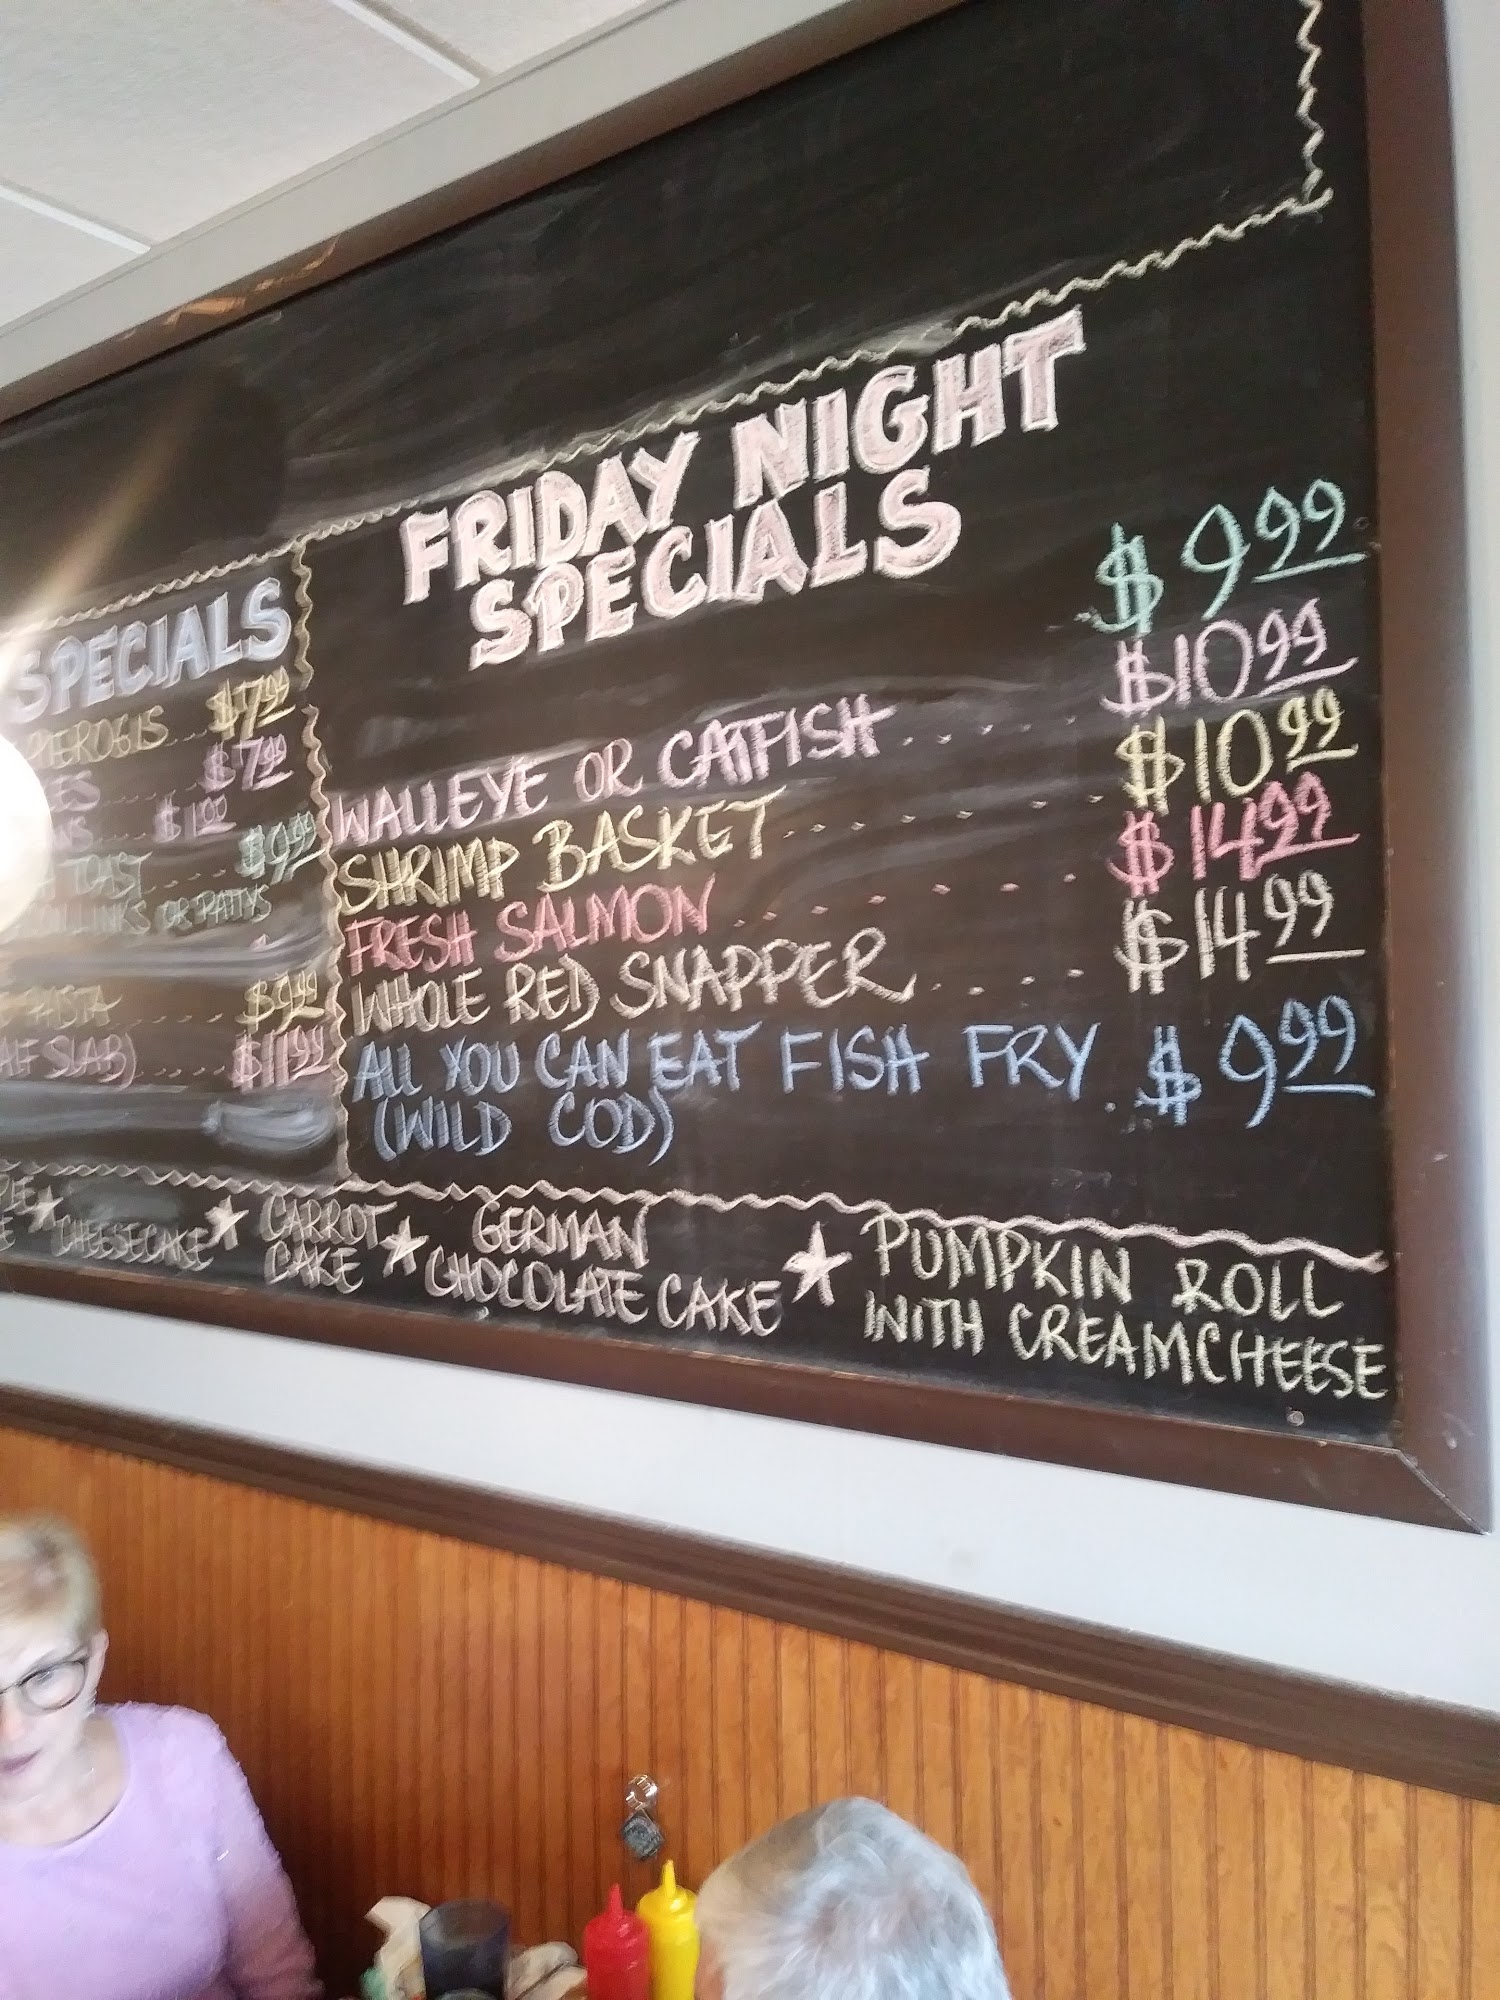 SPECIALS
PIEROGIS... $7.99
$7.99
$1.00
TOAST..... $9.99
LINKS OR PATTYS
PASTA ........ $9.99
SLAB)..... $11.99
FRIDAY NIGHT
SPECIALS
$9.99
WALLEYE OR CATFISH..... $10.99
SHRIMP BASKET....... $10.99
FRESH SALMON....... $14.99
WHOLE RED SNAPPER.... $14.99
ALL YOU CAN EAT FISH FRY. $9.99
(WILD COD)
CHEESECAKE
CARROT
CAKE
GERMAN
CHOCOLATE CAKE
PUMPKIN ROLL
WITH CREAMCHEESE